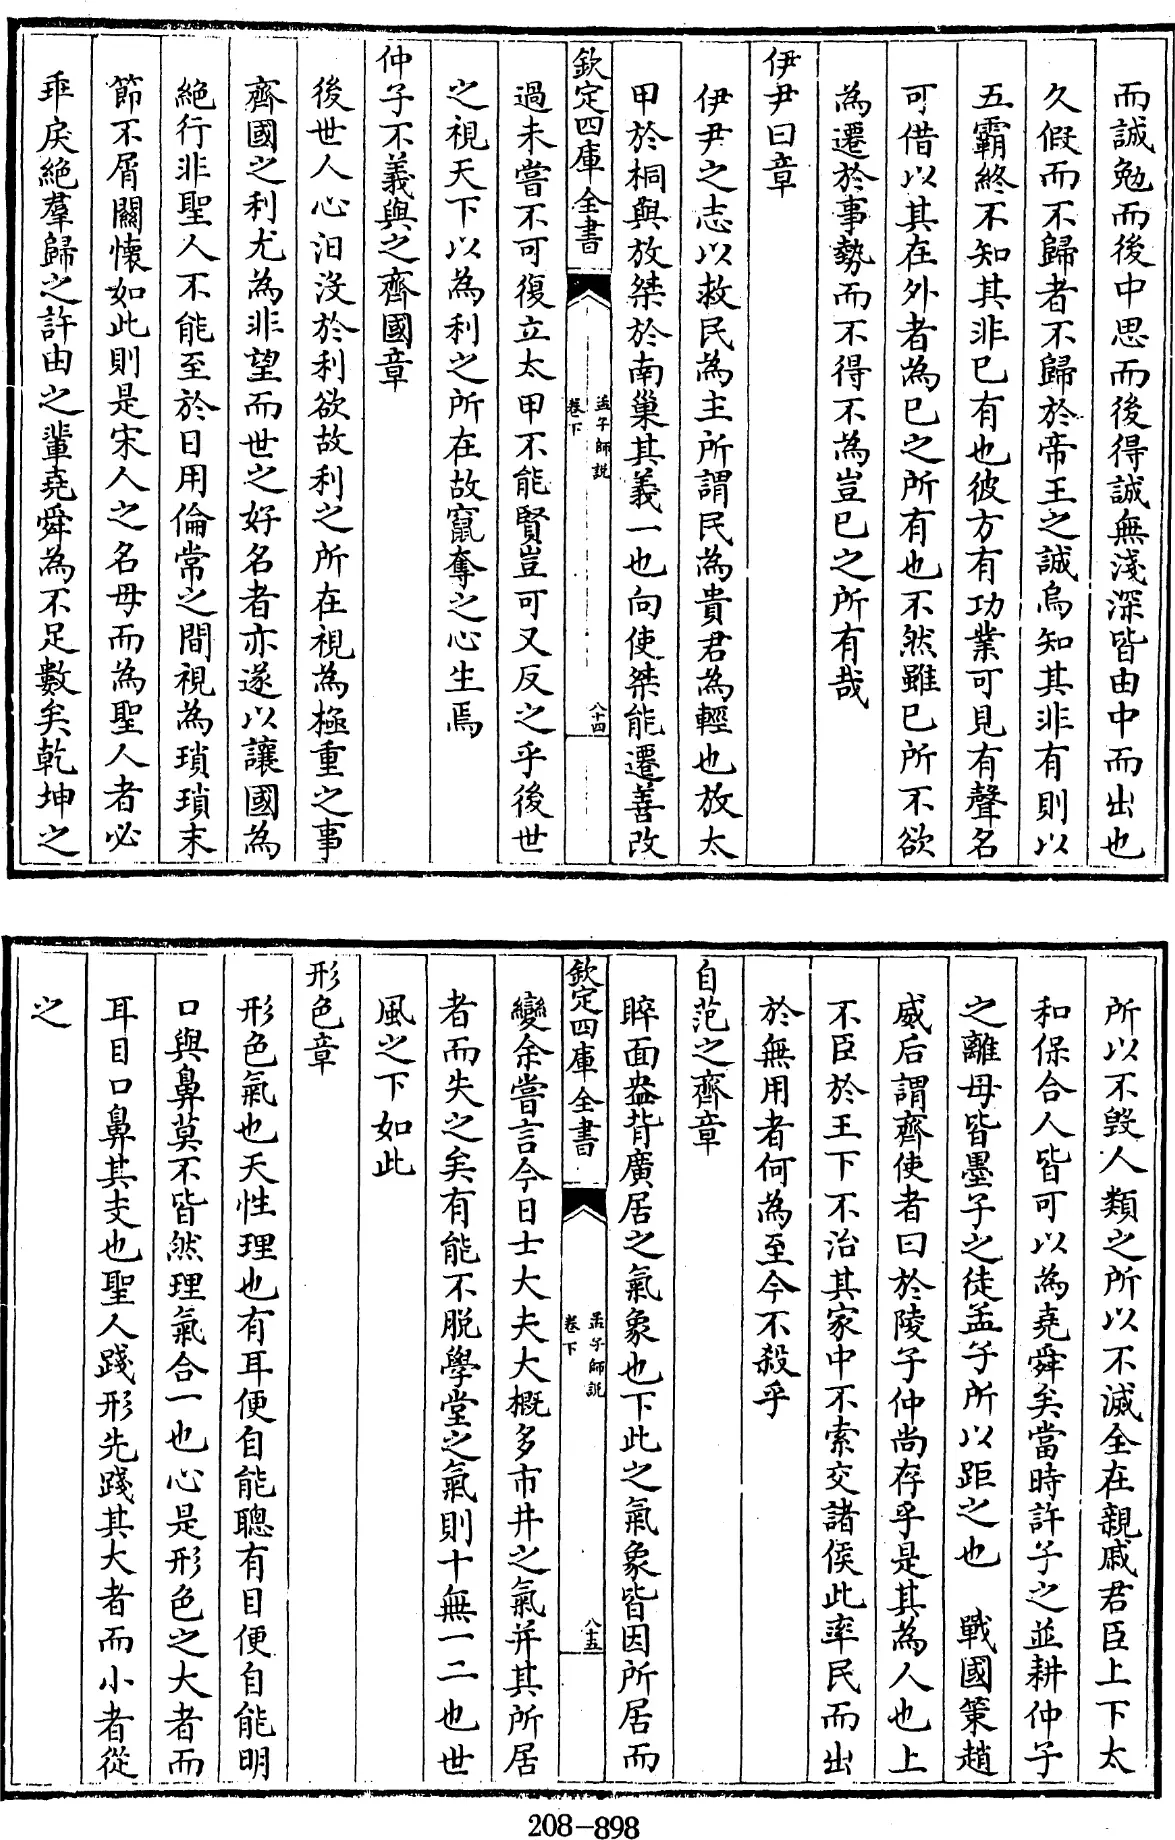 而誠勉而後中思而後得誠無淺深皆由中而出也
久假而不歸者不歸於帝王之誠烏知其非有則以
五霸終不知其非已有也彼方有功業可見有聲名
可借以其在外者為已之所有也不然雖已所不欲
為遷於事勢而不得不為豈已之所有哉
伊尹曰章
伊尹之志以救民為主所謂民為貴君為輕也放太
甲於桐與放桀於南巢其義一也向使桀能遷善改
欽定四庫全書
孟子師說
卷下
八十四
過未嘗不可復立太甲不能賢豈可又反之乎後世
之視天下以為利之所在故竄奪之心生焉
仲子不義與之齊國章
後世人心汨沒於利欲故利之所在視為極重之事
齊國之利尤為非望而世之好名者亦遂以讓國為
絕行非聖人不能至於日用倫常之間視為瑣瑣末
節不屑關懷如此則是宋人之名母而為聖人者必
乖戾絕羣歸之許由之輩堯舜為不足數矣乾坤之
所以不毀人類之所以不滅全在親戚君臣上下太
和保合人皆可以為堯舜矣當時許子之並耕仲子
之離母皆墨子之徒孟子所以距之也　戰國策趙
威后謂齊使者曰於陵子仲尚存乎是其為人也上
不臣於王下不治其家中不索交諸侯此率民而出
於無用者何為至今不殺乎
自范之齊章
睟面盎背廣居之氣象也下此之氣象皆因所居而
欽定四庫全書
孟子師說
卷下
八十五
變余嘗言今日士大夫大概多市井之氣并其所居
者而失之矣有能不脱學堂之氣則十無一二也世
風之下如此
形色章
形色氣也天性理也有耳便自能聰有目便自能明
口與鼻莫不皆然理氣合一也心是形色之大者而
耳目口鼻其支也聖人踐形先踐其大者而小者從
之
208-898